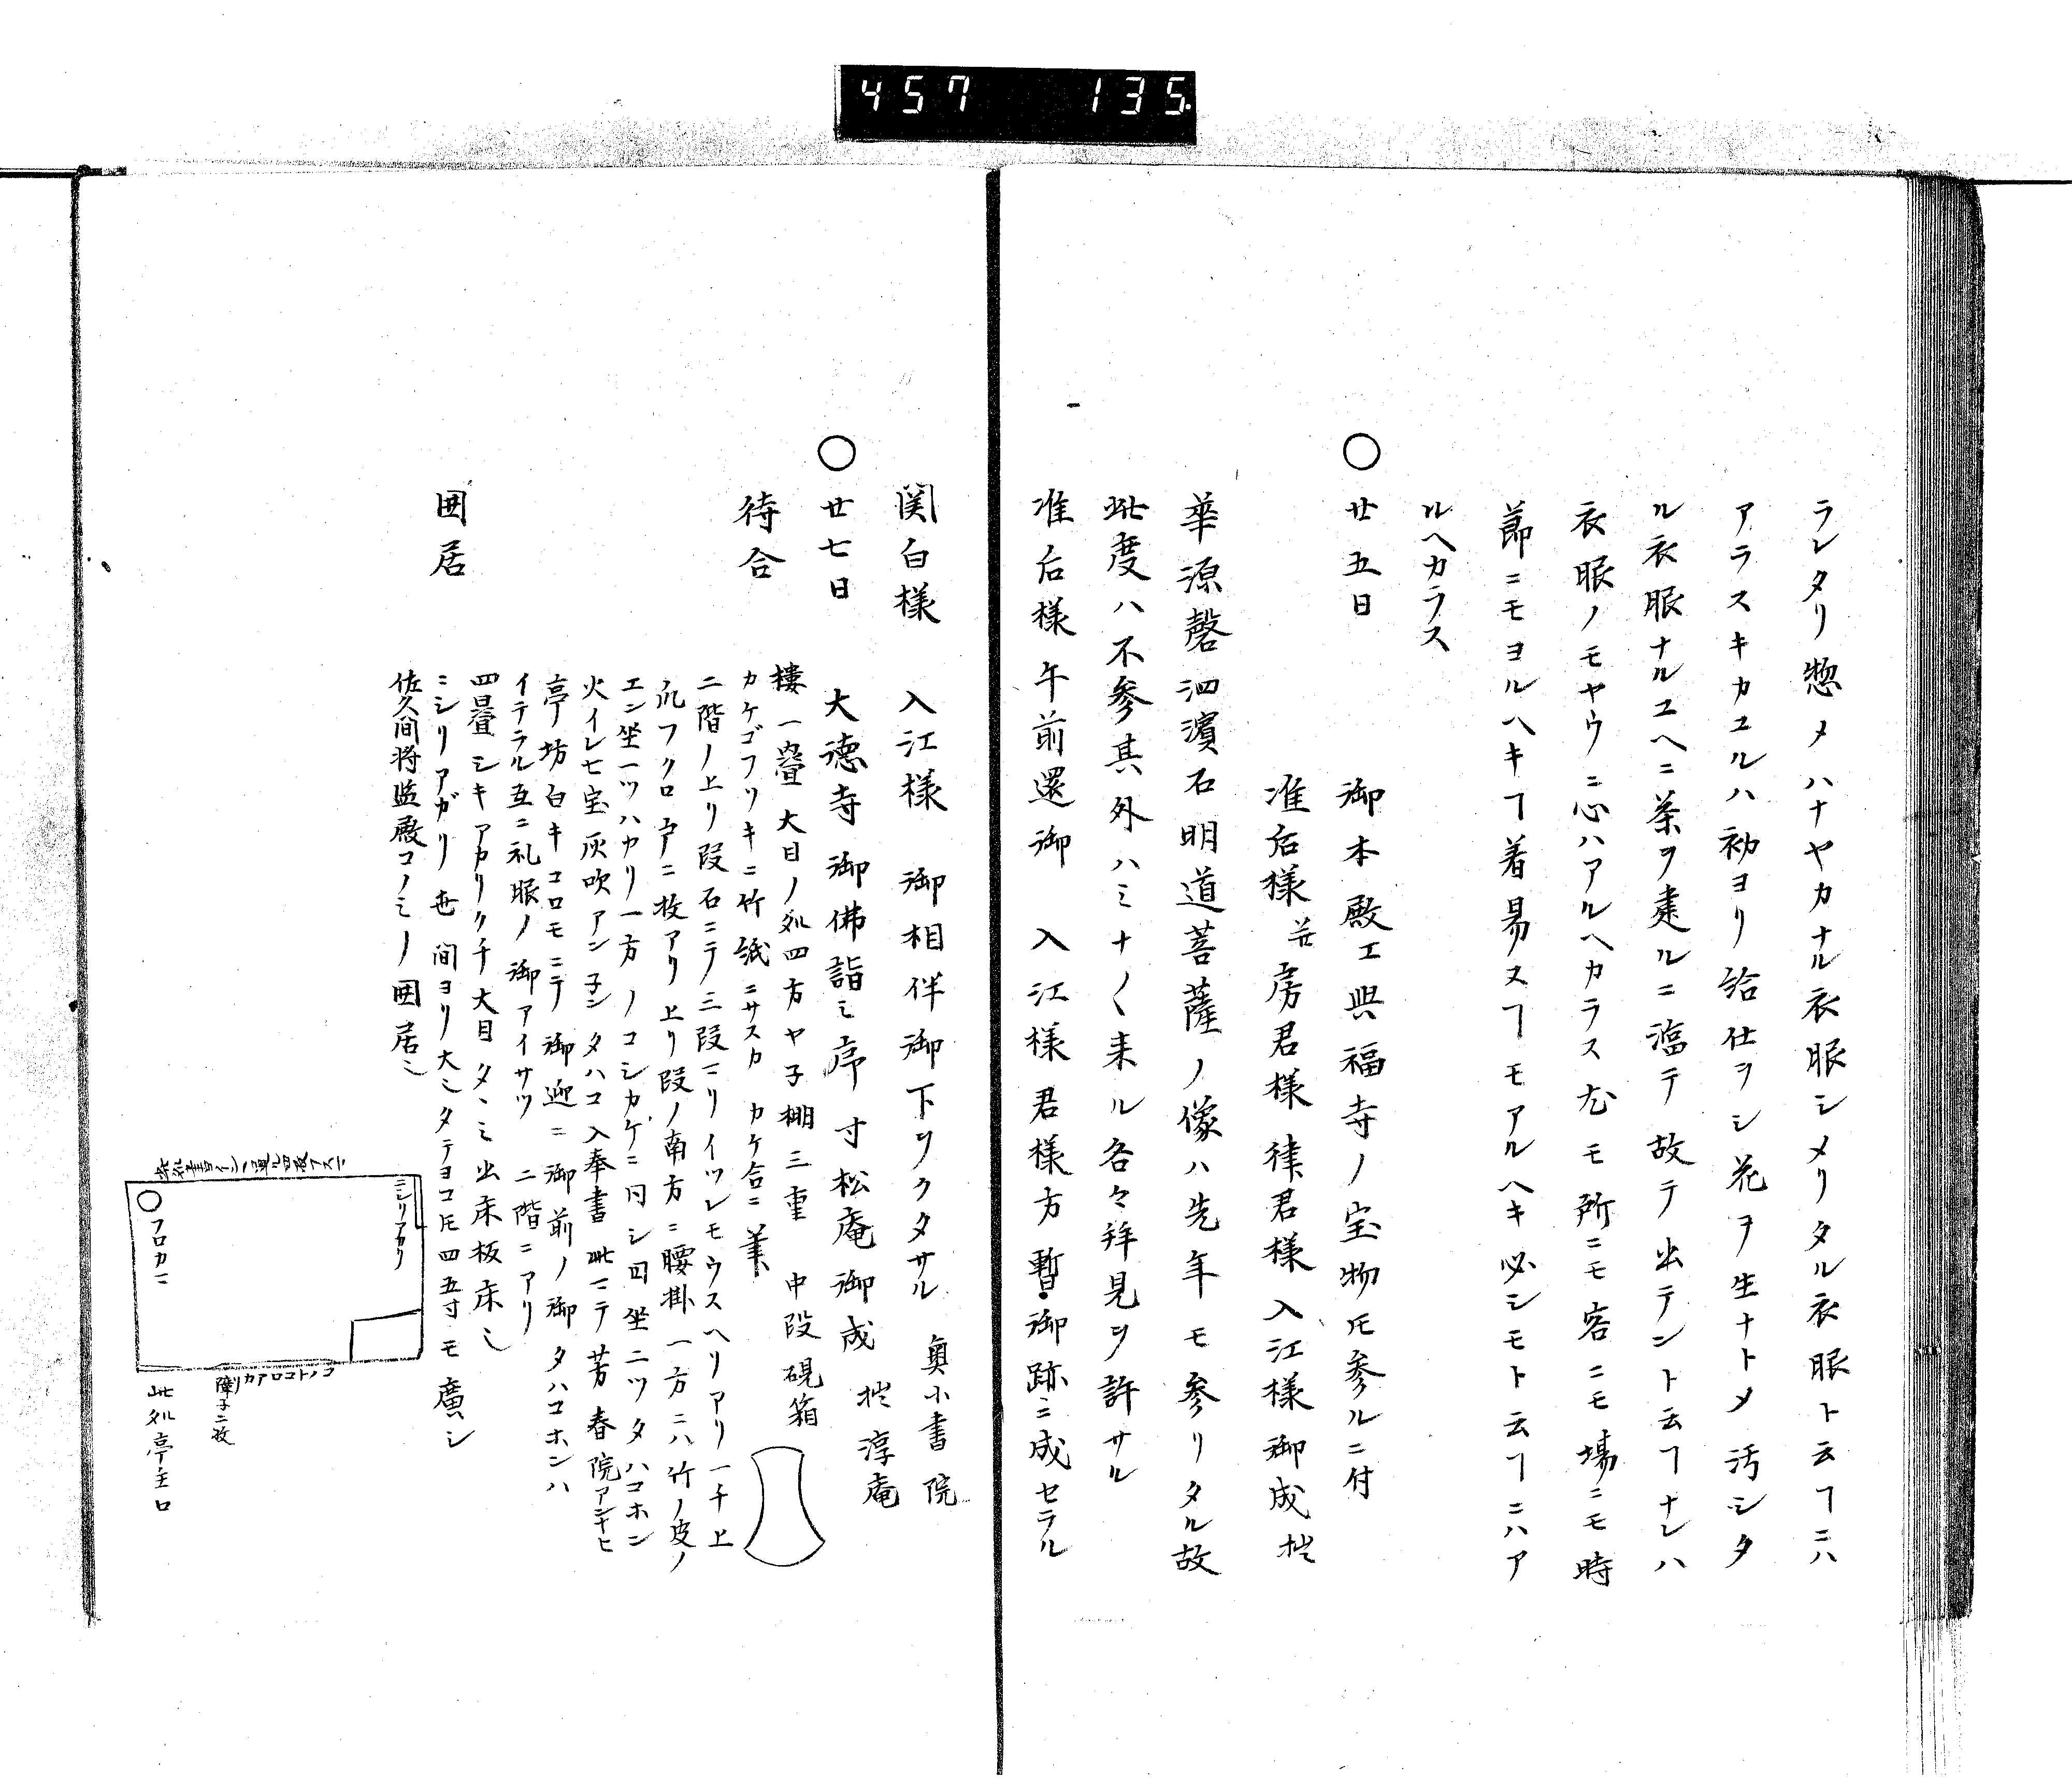 457 135
ラレタリ惣メハナヤカナル衣服シメリタル衣服ト云フニハ
アラスキカユルハ初ヨリ給仕ヲシ花ヲ生ナトメ汚シタ
ル衣服ナルユヘニ茶ヲ建ルニ臨テ故テ出テント云フナレハ
衣服ノモヤウニ心ハアルヘカラス尤モ所ニモ客ニモ場ニモ時
節ニモヨルヘキフ着易スフモアルヘキ必シモト云フニハア
ルヘカラス
〇廿五日 御本殿エ興福寺ノ宝物𪜈参ルニ付
准后様並房君様律君様入江様御成拙
華源磬泗濱石明道菩薩ノ像ハ先年モ参リタル故
此度ハ不参其外ハミナ〱来ル各々拝見ヲ許サル
准后様午前還御 入江様君様方暫御跡ニ成セラル
関白様 入江様 御相伴御下ヲクタサル 奥小書院
〇廿七日 大徳寺御佛詣ミ序寸松庵御成 拙 淳庵
待合 楼一畳大目ノ処四方ヤ子棚三重 中段硯箱
カケゴフツキニ竹紙ニサスカ カケ合ニ筆
二階ノ上リ段石ニテ三段ニリイツレモウスヘリアリ一チ上
ノ爪フクロ戸ニ枚アリ上リ段ノ南方ニ腰掛一方ニハ竹ノ皮ノ
エン坐一ツハカリ一方ノコシカケニ同シ囙坐ニツタハコホン
火イレ七宝灰吹アンチンタハコ入奉書此ニテ芳春院アンナヒ
亭坊白キコロモニテ御迎ニ御前ノ御タハコホンハ
イテラル互ニ礼服ノ御アイサツ 二階ニアリ
囲居 四畳シキアカリク千大目タヽミ出床板床ミ
ニシリアガリ也間ヨリ大ニタテヨコ𪜈四五寸モ廣シ
佐久間将監殿コノミノ囲居ミ
ニシリアカリ
フロカマ
コノトコロアカリ障子二枚
此処亭主口